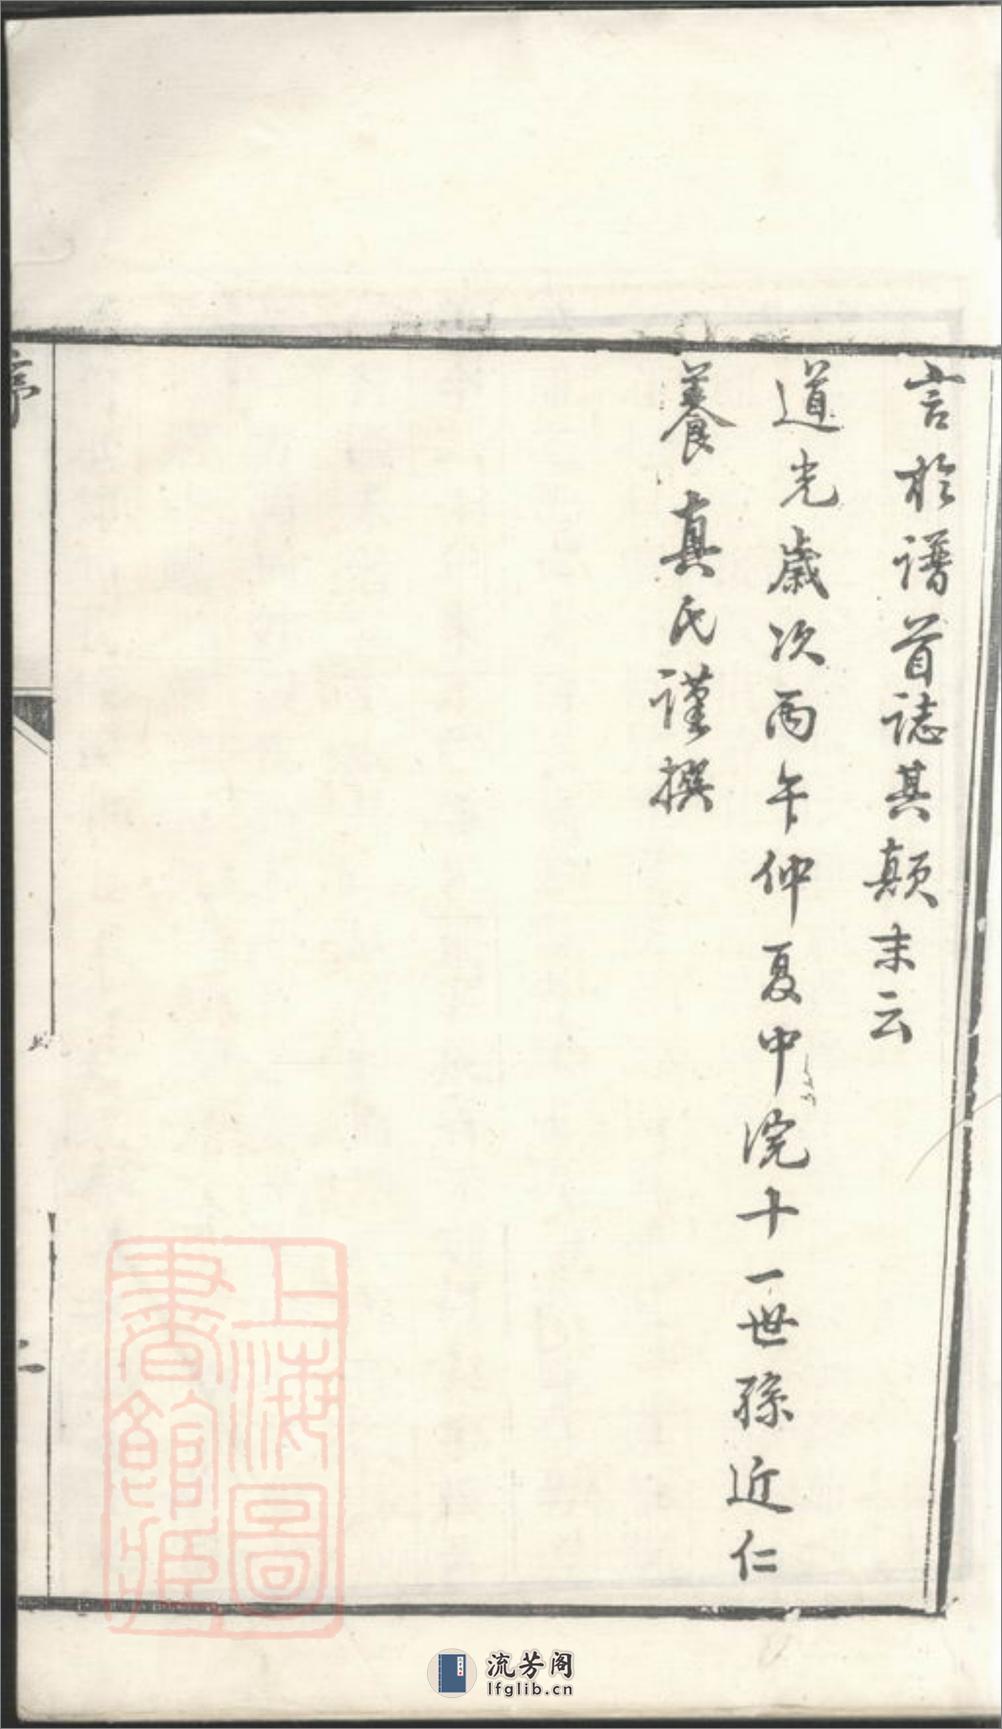 言於譜首誌其顛末云
道光歲次丙午仲夏中浣十一世孫近仁
養真氏謹撰
序
二
上海圖
書館藏
流芳阁
lfglib.cn